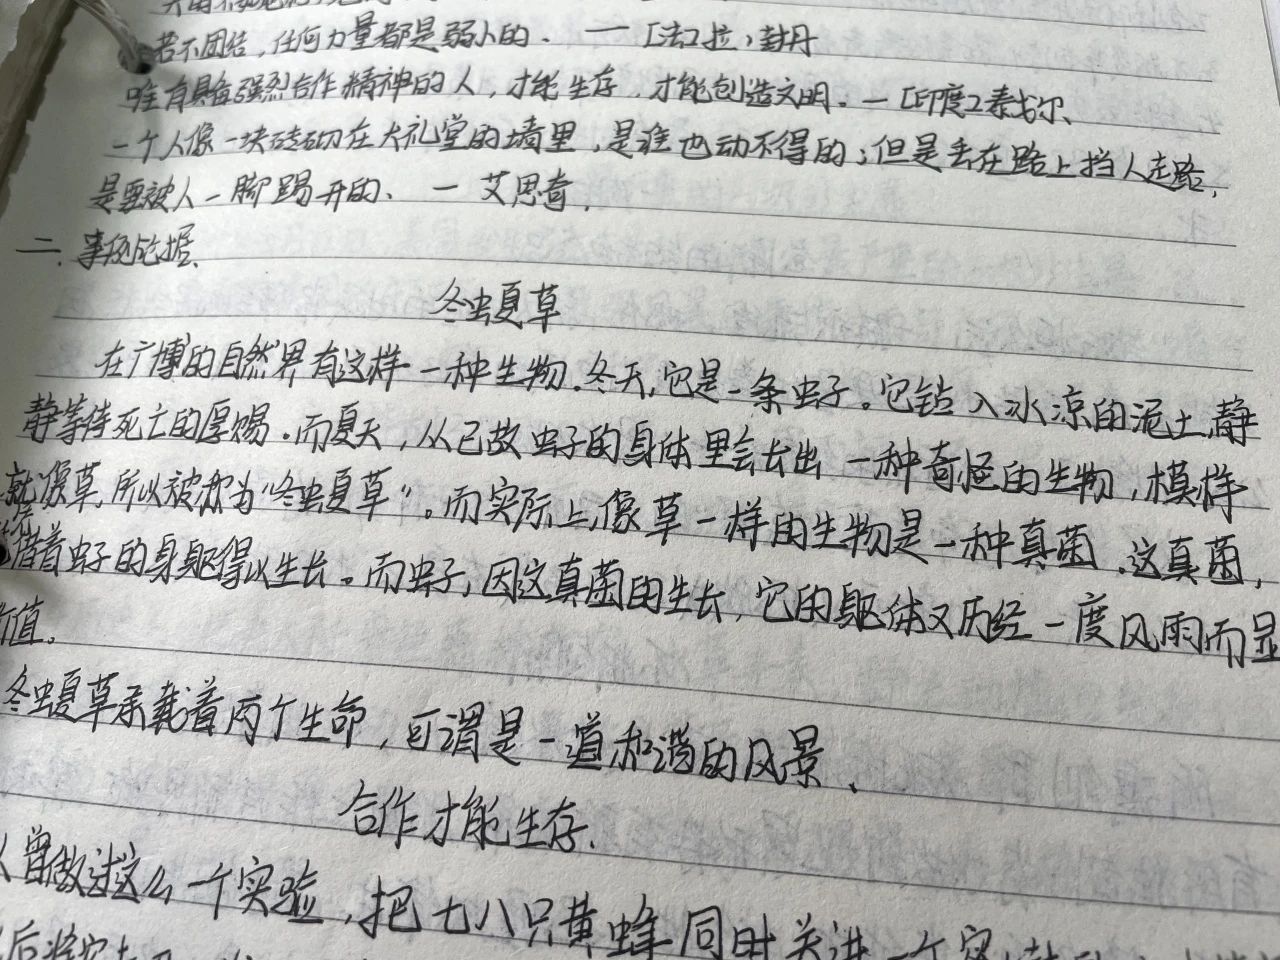 若不团结，任何力量都是弱小的．——［法］拉，封丹
唯有具备强烈合作精神的人，才能生存，才能创造文明。—［印度］泰戈尔、
一个人像一块砖砌在大礼堂的墙里，是谁也动不得的；但是丢在路上挡人走路，
是要被人一脚踢开的、—艾思奇．
二．事例论据、
冬虫夏草
在广博的自然界有这样一种生物．冬天，它是一条虫子。它钻入冰凉的泥土，静
静等待死亡的厚赐。而夏天，从已故虫子的身体里会长出一种奇怪的生物，模样
就像草，所以被称为“冬虫夏草”。而实际上，像草一样的生物是一种真菌．这真菌，
借着虫子的身躯得以生长。而虫子，因这真菌的生长，它的躯体又历经一度风雨而显
值。
冬虫夏草承载着两个生命，可谓是一道和谐的风景、
合作才能生存．
人曾做过这么一个实验，把七八只黄蜂同时关进一个密
后将它